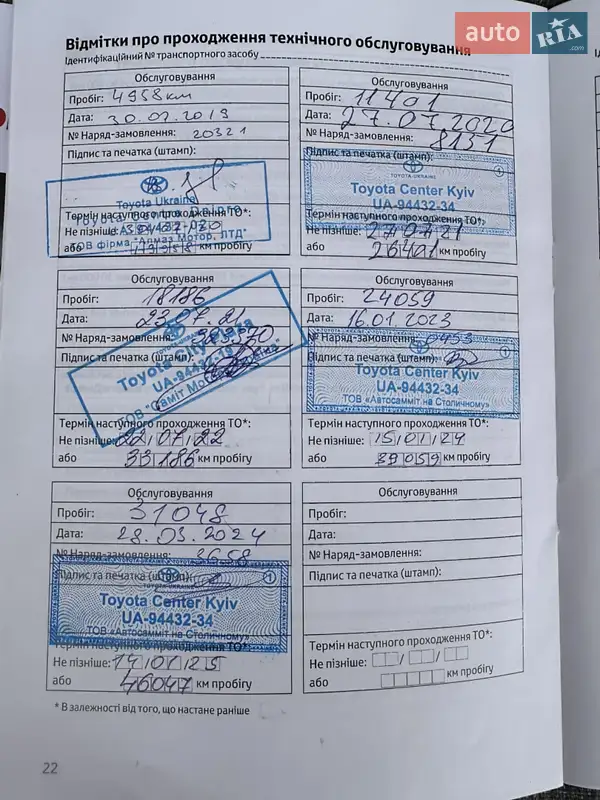 auto RIA.com
Відмітки про проходження технічного обслуговування
Ідентифікаційний № транспортного засобу
Обслуговування
Пробіг: 4958км
Дата: 30.07.2019
№ Наряд-замовлення: 20321
Підпис та печатка (штамп):
Toyota Ukraine
ТОВ фірма "Алмаз Мотор, ЛТД"
Термін наступного проходження ТО*:
Не пізніше:
або 19958 км пробігу
Обслуговування
Пробіг: 11401
Дата: 27.07.2020
№ Наряд-замовлення: 8151
Підпис та печатка (штамп):
TOYOTA-UKRAINE
Toyota Center Kyiv
UA-94432-34
Термін наступного проходження ТО*:
Не пізніше: 27/07/21
або 26401 км пробігу
Обслуговування
Пробіг: 18186
Дата: 23.07.21
№ Наряд-замовлення:
Підпис та печатка (штамп):
Toyota
Термін наступного проходження ТО*:
Не пізніше: 22/07/22
або 33186 км пробігу
Обслуговування
Пробіг: 24059
Дата: 16.01.2023
№ Наряд-замовлення: 0453
Підпис та печатка (штамп):
Toyota Center Kyiv
UA-94432-34
ТОВ «Автосамміт на Столичному»
Термін наступного проходження ТО*:
Не пізніше: 15/01/24
або 39059 км пробігу
Обслуговування
Пробіг: 31048
Дата: 28.03.2024
№ Наряд-замовлення: 3658
Підпис та печатка (штамп):
Toyota Center Kyiv
UA-94432-34
ТОВ «Автосамміт на Столичному»
Термін наступного проходження ТО*:
Не пізніше: 14/01/25
або 46047 км пробігу
Обслуговування
Пробіг:
Дата:
№ Наряд-замовлення:
Підпис та печатка (штамп):
Термін наступного проходження ТО*:
Не пізніше:
або км пробігу
* В залежності від того, що настане раніше
22